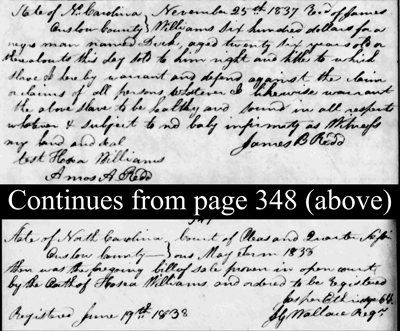 State of No. Carolina } November 25th 1837 Recd of James
Onslow County } Williams Six hundred dollars for a
negro man named Dock, aged twenty six years old or
thereabouts this day sold to him right and title to which
slave I hereby warrant and defend against the claim
or claims of all persons whatever I likewise warrant
the above slave to be healthy and sound in all respects
whatever & subject to no body infirmity as Witness
my hand and seal James B Redd
test Hosea Williams
Amos A. Redd
Continues from page 348 (above)
State of North Carolina Court of Pleas and Quarter Sessi
Onslow County } ons May Term 1838
then was the foregoing bill of sale proven in open court
by the Oath of Hosea Williams and ordered to be Registered
Jasper Etheridge Clk
Registered June 19th 1838 Wallace Regr